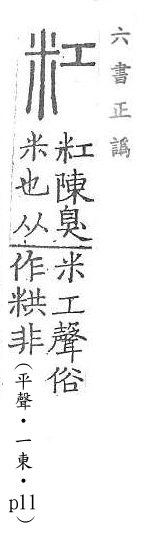 六書正譌
䉺
䉺陳臭
米也从
米工聲俗
作粠非(平聲・一東・p11)